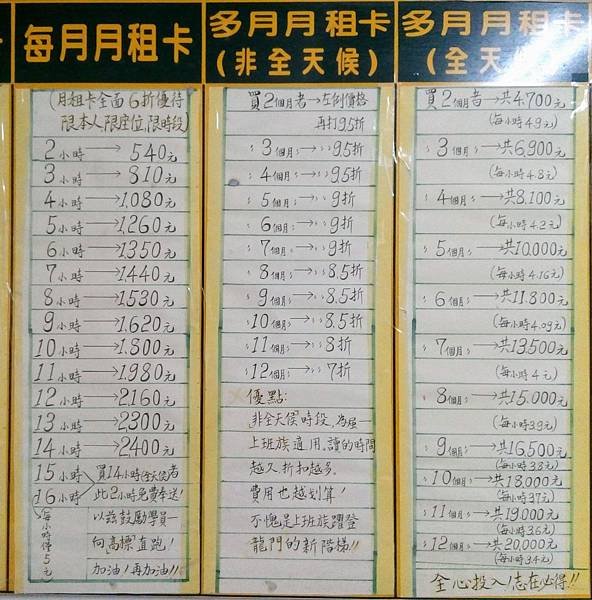 每月月租卡
(月租卡全面6折優待
限本人限座位,限時段)
2小時→540元
3小時→810元
4小時→1,080元
5小時→1,260元
6小時→1,350元
7小時→1,440元
8小時→1,530元
9小時→1,620元
10小時→1,800元
11小時→1,980元
12小時→2,160元
13小時→2,300元
14小時→2,400元
15小時
16小時
買14小時(全天候)者
此2小時免費奉送!
每小時僅5元
以茲鼓勵學員—
向高標直跑!
加油!再加油!!
多月月租卡
(非全天候)
買2個月者→左例價格
再打95折
〃3個月〃→〃95折
〃4個月〃→〃95折
〃5個月〃→〃9折
〃6個月〃→〃9折
〃7個月〃→〃9折
〃8個月〃→〃8.5折
〃9個月〃→〃8.5折
〃10個月〃→〃8.5折
〃11個月〃→〃8折
〃12個月〃→〃7折
優點:
非全天候時段,為屋一
上班族適用,讀的時間
越久折扣越多.
費用也越划算!
不愧是上班族躍登
龍門的新階梯!!
多月月租卡
(全天
買2個月者→共4,700元
(每小時4.9元)
〃3個月〃→共6,900元
(每小時4.8元)
〃4個月〃→共8,100元
(每小時4.2元)
〃5個月〃→共10,000元
(每小時4.16元)
〃6個月〃→共11,800元
(每小時4.09元)
〃7個月〃→共13,500元
(每小時4元)
〃8個月〃→共15,000元
(每小時3.9元)
〃9個月〃→共16,500元
(每小時3.8元)
〃10個月〃→共18,000元
(每小時3.7元)
〃11個月〃→共19,000元
(每小時3.6元)
〃12個月〃→共20,000元
(每小時3.4元)
全心投入!志在必得!!